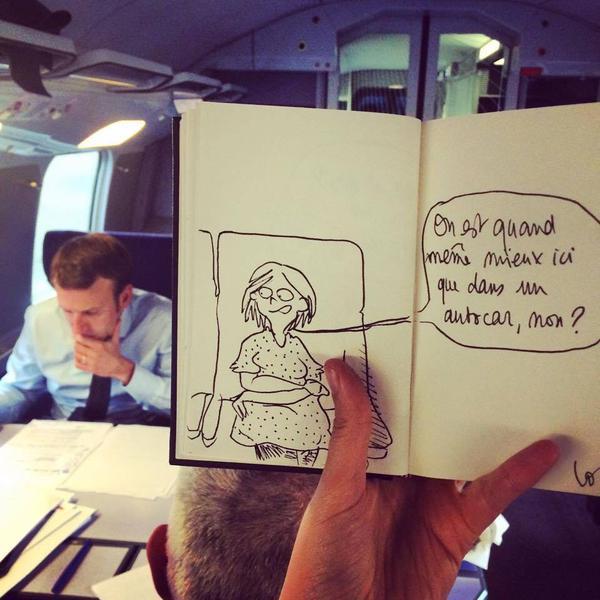 On est quand
même mieux ici
que dans un
autocar, non?